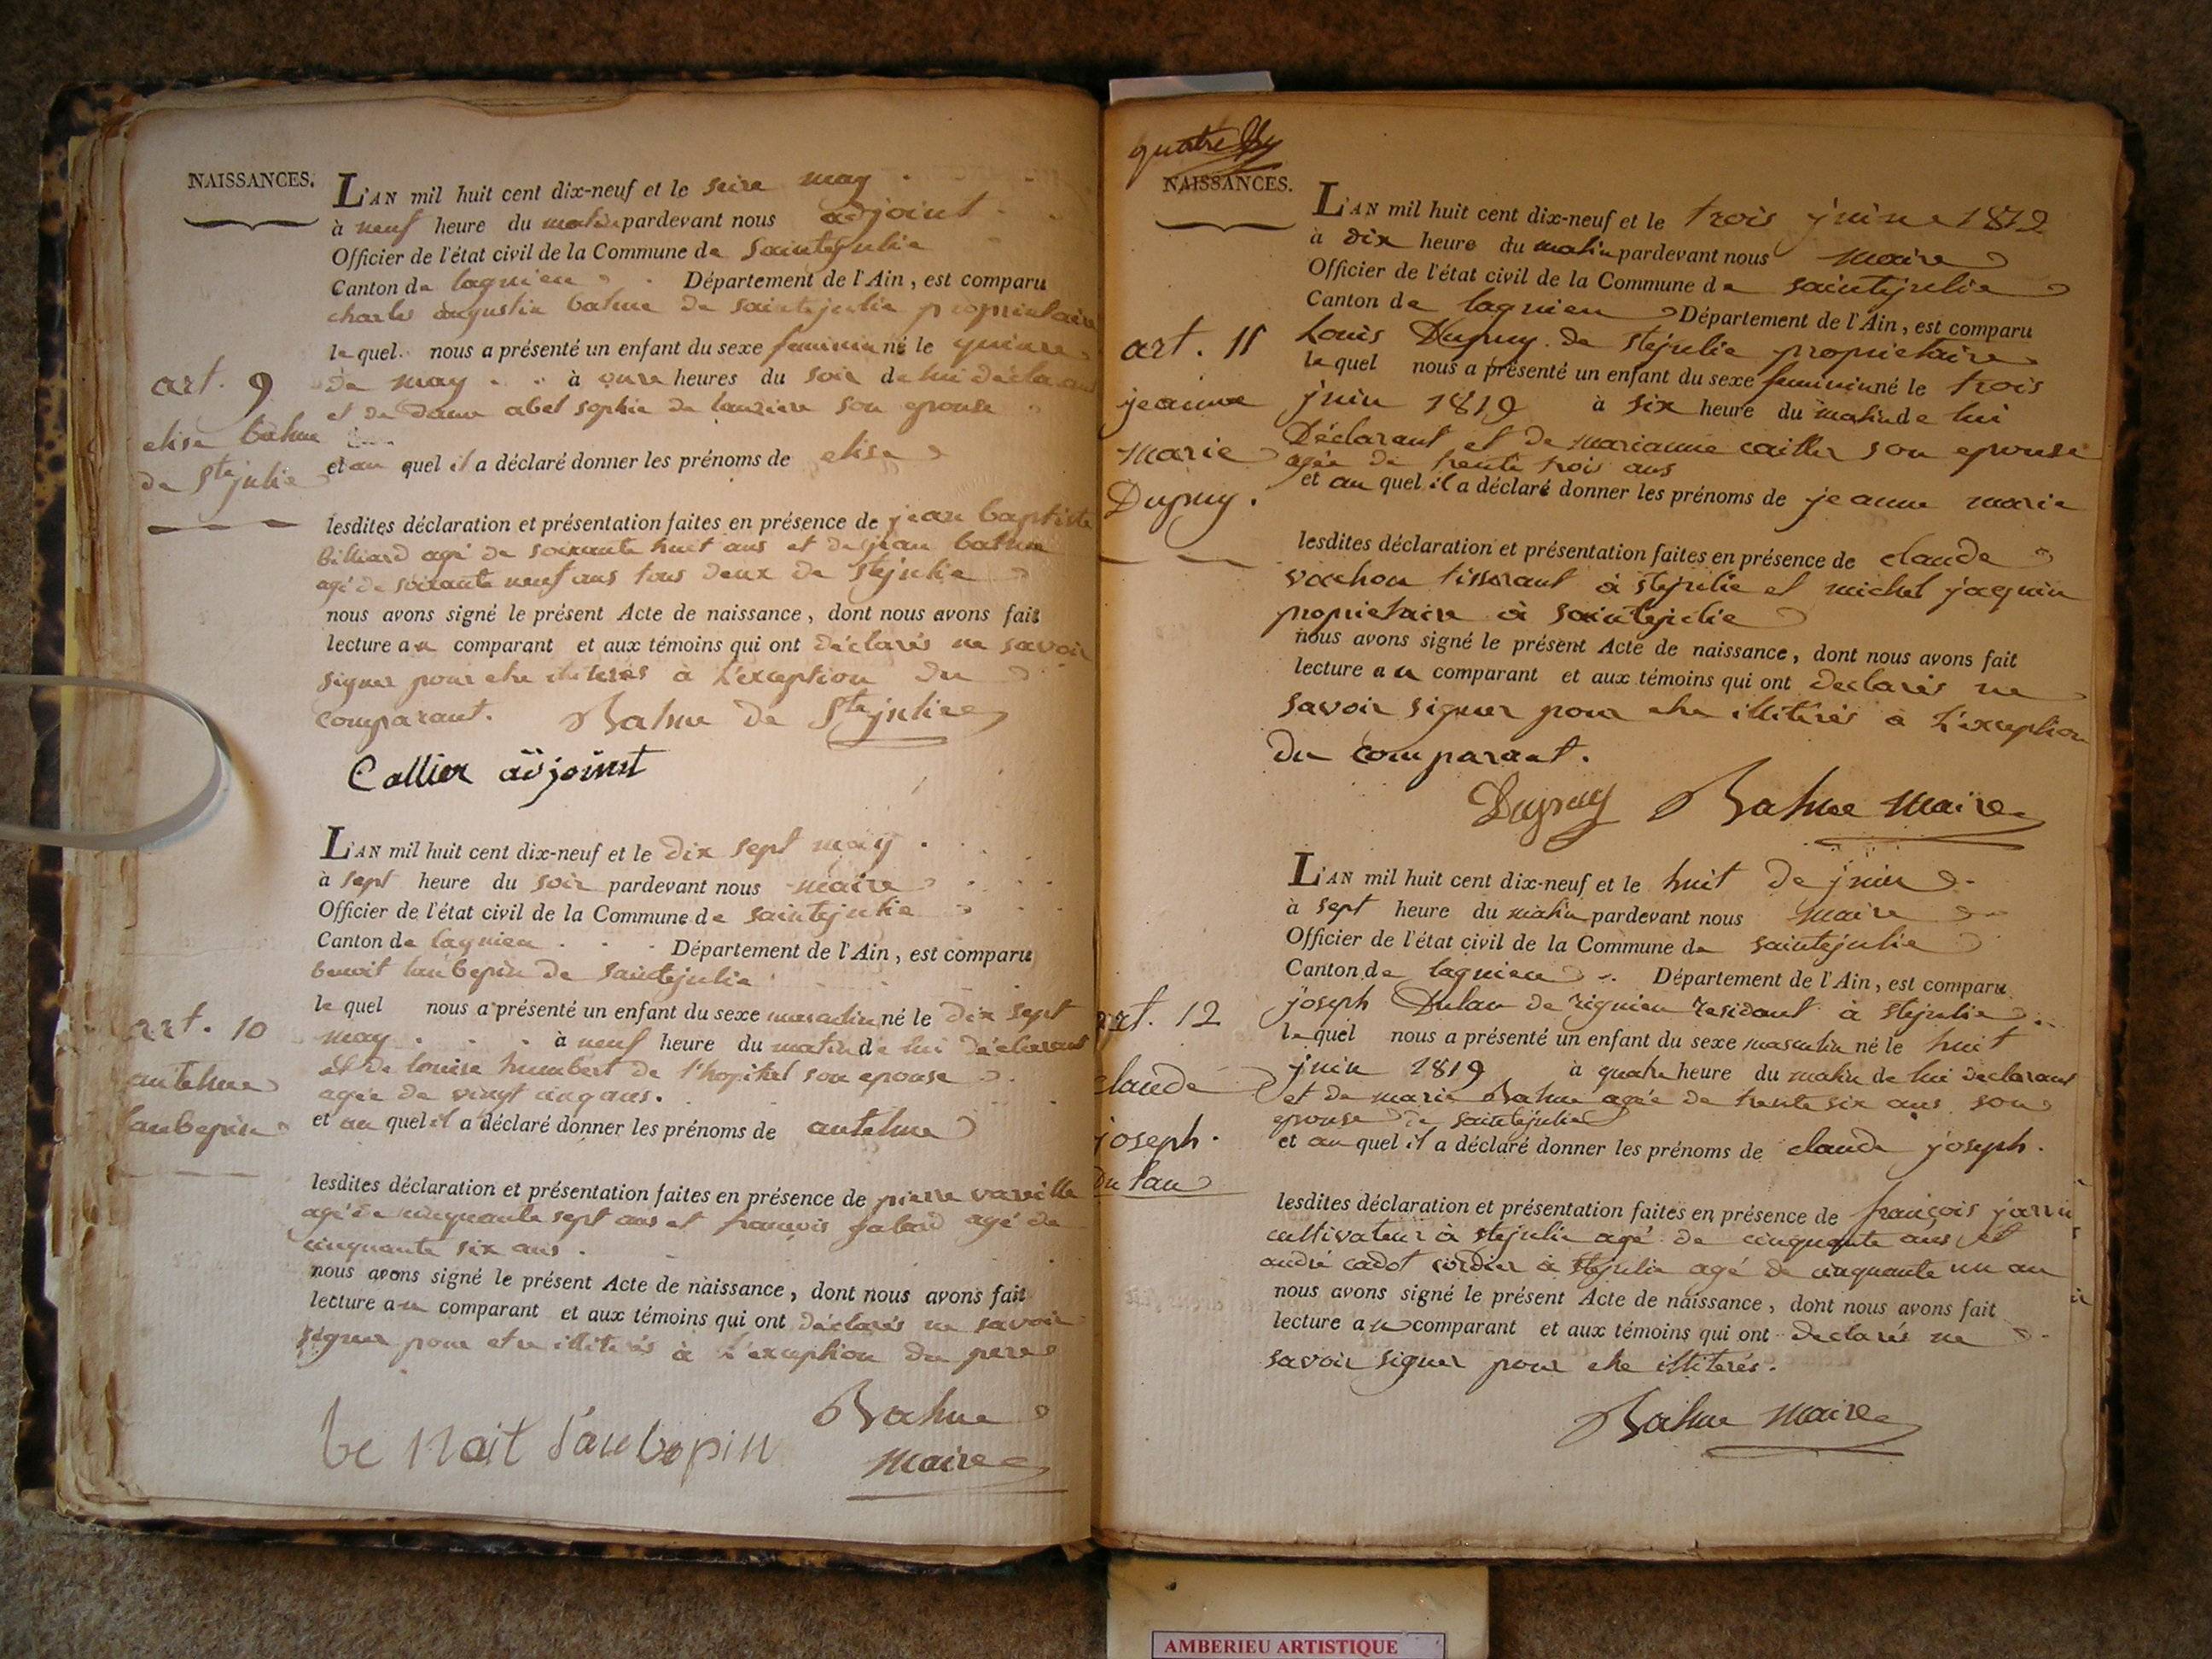 NAISSANCES.
L'AN mil huit cent dix-neuf et le seize may
à neuf heure du matin pardevant nous adjoint
Officier de l'état civil de la Commune de saintejulie
Canton de lagnieu Département de l'Ain, est comparu
charles augustin balme de saintejulie proprietaire
le quel nous a présenté un enfant du sexe feminin né le quinze
de may à onze heures du soir de lui déclarant
et de dame abel sophie de lauziere son epouse
et au quel il a déclaré donner les prénoms de elise
art. 9
elise balme
de Ste julie
lesdites déclaration et présentation faites en présence de jean baptiste
billiard agé de soixante huit ans et de jean balme
agé de soixante neuf ans tous deux de stejulie
nous avons signé le présent Acte de naissance, dont nous avons fait
lecture au comparant et aux témoins qui ont déclarés ne savoir
signer pour etre illiterés à l'exception du
comparant. Balme de Stejulie
Collier adjoint
L'AN mil huit cent dix-neuf et le dix sept may
à sept heure du soir pardevant nous maire
Officier de l'état civil de la Commune de saintejulie
Canton de lagnieu Département de l'Ain, est comparu
benoit laubepin de saintejulie
le quel nous a présenté un enfant du sexe masculin né le dix sept
may à neuf heure du matin de lui déclarant
et de louise humbert de l'hopital son epouse
agée de vingt cinq ans.
et au quel il a déclaré donner les prénoms de antelme
art. 10
antelme
laubepin
lesdites déclaration et présentation faites en présence de pierre vareille
agé de cinquante sept ans et francois agé de
cinquante six ans.
nous avons signé le présent Acte de naissance, dont nous avons fait
lecture au comparant et aux témoins qui ont déclarés ne savoir
signer pour etre illiterés à l'exception du pere
be nait laubepin Balme
maire
quatre
NAISSANCES.
L'AN mil huit cent dix-neuf et le trois juin 1819
à dix heure du matin pardevant nous maire
Officier de l'état civil de la Commune de saintejulie
Canton de lagnieu Département de l'Ain, est comparu
Louis Dupuy de stejulie proprietaire
le quel nous a présenté un enfant du sexe feminin né le trois
juin 1819 à six heure du matin de lui
Déclarant et de marianne caillier son epouse
agée de trente trois ans
et au quel il a déclaré donner les prénoms de jeanne marie
art. 11
jeanne
marie
Dupuy.
lesdites déclaration et présentation faites en présence de claude
vachon tisserant à stejulie et michel jaquin
proprietaire à saintejulie
nous avons signé le présent Acte de naissance, dont nous avons fait
lecture au comparant et aux témoins qui ont declarés ne
savoir signer pour etre illiterés à l'exception
du comparant.
Dupuy Balme maire
L'AN mil huit cent dix-neuf et le huit de juin
à sept heure du matin pardevant nous maire
Officier de l'état civil de la Commune de saintejulie
Canton de lagnieu Département de l'Ain, est comparu
joseph Dulau de rignieu residant à stejulie
le quel nous a présenté un enfant du sexe masculin né le huit
juin 1819 à quatre heure du matin de lui declarant
et de marie Balme agée de trente six ans son
epouse de saintejulie
et au quel il a déclaré donner les prénoms de claude joseph.
art. 12
claude
joseph.
du lau
lesdites déclaration et présentation faites en présence de françois jarrin
cultivateur à stejulie agé de cinquante ans et
andré cadot cordier à stejulie agé de cinquante un an
nous avons signé le présent Acte de naissance, dont nous avons fait
lecture au comparant et aux témoins qui ont declarés ne
savoir signer pour etre illiterés.
Balme maire
AMBERIEU ARTISTIQUE